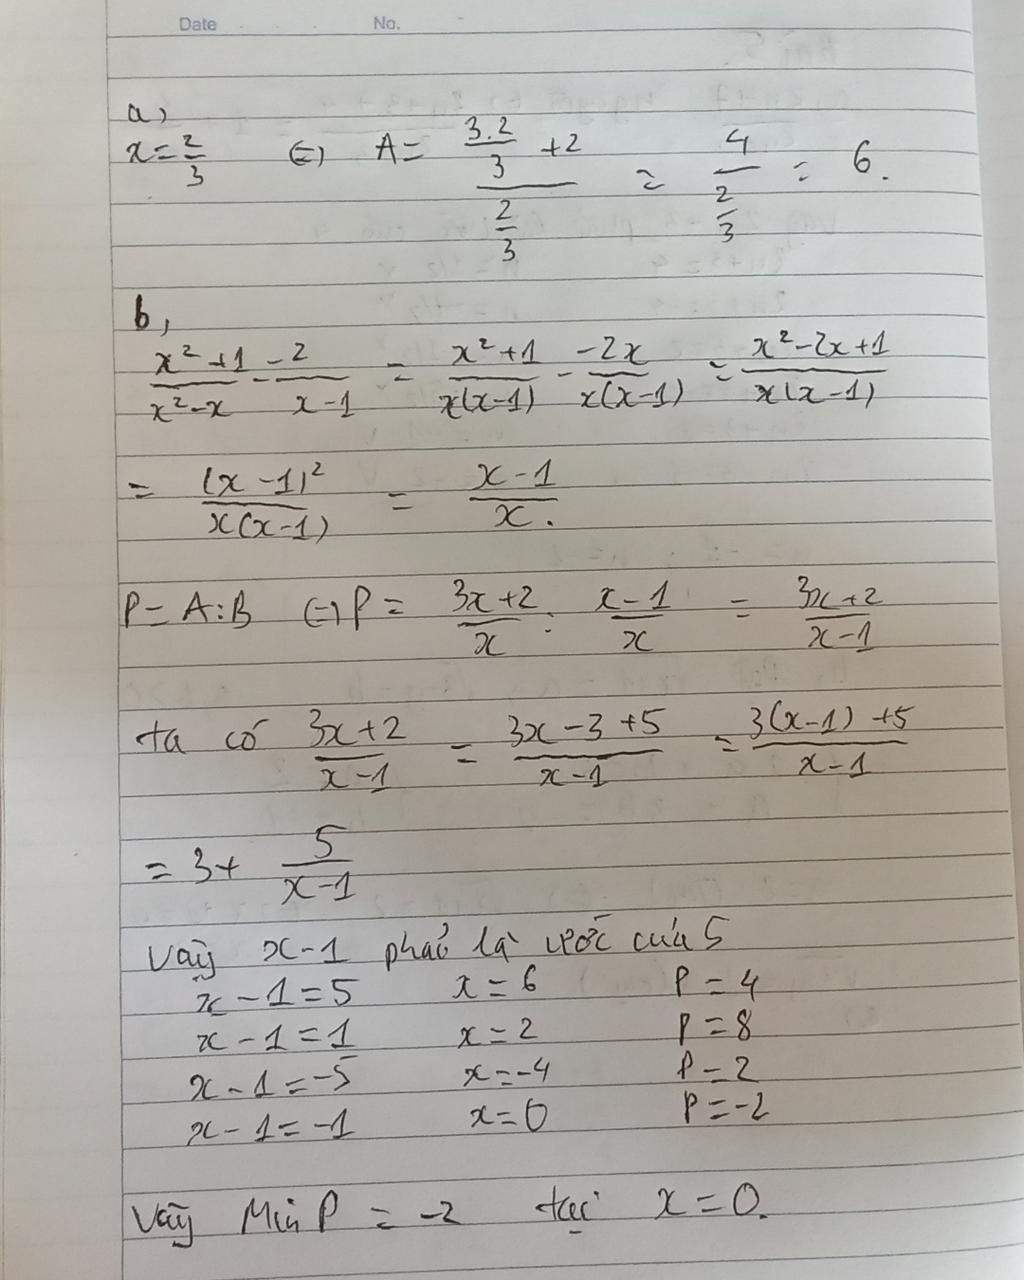 Date No.
a,
x = 2/3 (=) A = (3.2/3 + 2)/(2/3) = 4/(2/3) = 6.
b,
(x² + 1)/(x² - x) - 2/(x - 1) = (x² + 1)/(x(x-1)) - 2x/(x(x-1)) = (x² - 2x + 1)/(x(x-1))
= (x - 1)²/(x(x-1)) = (x - 1)/x.
P = A : B (=) P = (3x + 2)/x : (x - 1)/x = (3x + 2)/(x - 1)
ta có (3x + 2)/(x - 1) = (3x - 3 + 5)/(x - 1) = (3(x-1) + 5)/(x - 1)
= 3 + 5/(x - 1)
Vậy x - 1 phải là ước của 5
x - 1 = 5 x = 6 P = 4
x - 1 = 1 x = 2 P = 8
x - 1 = -5 x = -4 P = 2
x - 1 = -1 x = 0 P = -2
Vậy Min P = -2 tại x = 0.